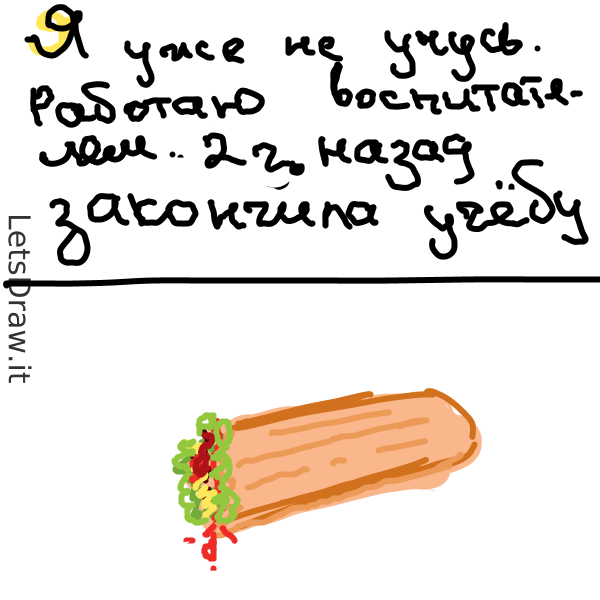 Я уже не учусь.
Работаю воспитате-
лем. 2 г. назад
закончила учёбу
LetsDraw.it